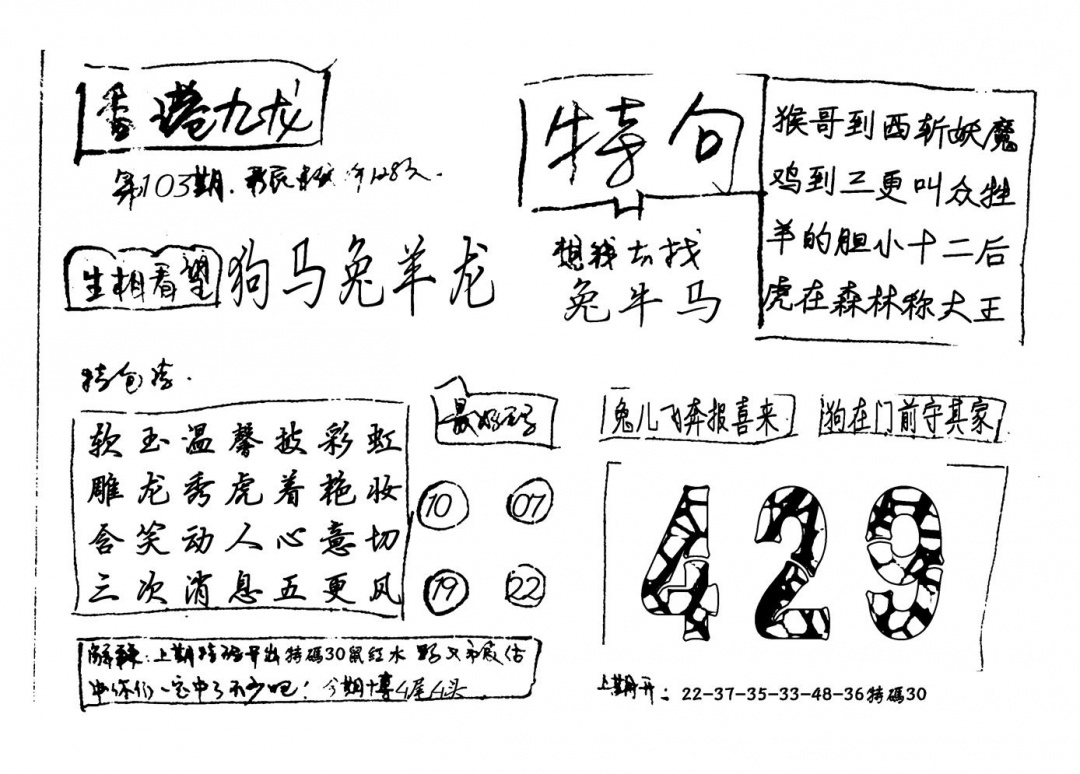 香港九龙
第103期.
生相看望
狗马兔羊龙
特句
想我去找
兔牛马
猴哥到西斩妖魔
鸡到三更叫众牲
羊的胆小十二后
虎在森林称大王
特包诗.
软玉温馨披彩虹
雕龙秀虎着艳妆
含笑动人心意切
三次消息五更风
最好码
10 07
19 22
兔儿飞奔报喜来
狗在门前守其家
429
解釋:上期特码开出特碼30鼠红水
中你们一定中了不少吧!今期博4尾4头
上期开:22-37-35-33-48-36特碼30